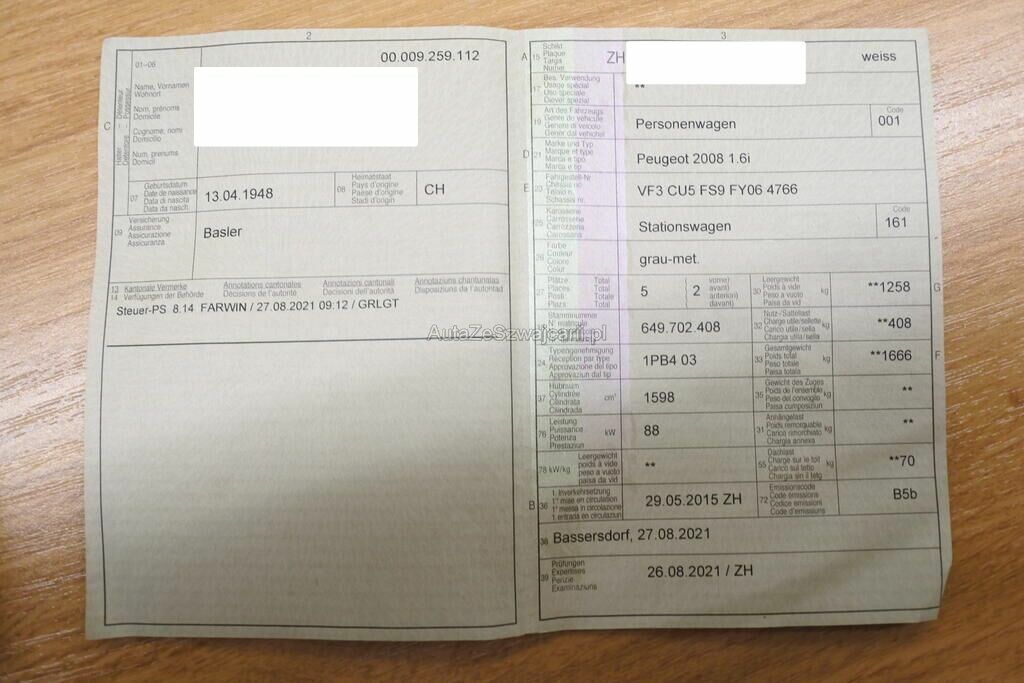 2
00.009.259.112
01–06
Name, Vornamen
Wohnort
Nom, prénoms
Domicile
Cognome, nomi
Domicilio
Num, prenums
Domicil
C
07 Geburtsdatum
Date de naissance
Data di nascita
Data da nasch.
13.04.1948
08 Heimatstaat
Pays d'origine
Paese d'origine
Stadi d'origin
CH
09 Versicherung
Assurance
Assicurazione
Assicuranza
Basler
13 Kantonale Vermerke Annotations cantonales Annotazioni cantonali Annotaziuns chantunalas
14 Verfügungen der Behörde Décisions de l'autorité Decisioni dell'autorità Disposiziuns da l'autoritad
Steuer-PS 8.14 FARWIN / 27.08.2021 09:12 / GRLGT
AutaZeSzwajcarii.pl
3
A 15 Schild
Plaque
Targa
Numer
ZH
weiss
17 Bes. Verwendung
Usage spécial
Uso speciale
Diever spezial
**
19 Art des Fahrzeugs
Genre de véhicule
Genere di veicolo
Gener dal vehichel
Personenwagen
Code
001
D 21 Marke und Typ
Marque et type
Marca e tipo
Marca e tip
Peugeot 2008 1.6i
E 23 Fahrgestell-Nr
Châssis no
Telaio n.
Schassis nr.
VF3 CU5 FS9 FY06 4766
25 Karosserie
Carrosserie
Carrozzeria
Carossaria
Stationswagen
Code
161
26 Farbe
Couleur
Colore
Colur
grau-met.
27 Plätze: Total
Places: Total
Posti: Totale
Plazs: Total
5
vorne)
avant)
anteriori)
davant)
2
30 Leergewicht
Poids à vide
Peso a vuoto
Paisa da vid
kg
**1258
G
Stammnummer
N° matricule
649.702.408
32 Nutz-/Sattellast
Charge utile/sellette
Carico utile/sella
Chargia utila/sella
kg
**408
24 Typengenehmigung
Réception par type
Approvazione del tipo
Approvaziun dal tip
1PB4 03
33 Gesamtgewicht
Poids total
Peso totale
Paisa totala
kg
**1666
F
37 Hubraum
Cylindrée
Cilindrata
Cilindrada
cm³
1598
35 Gewicht des Zuges
Poids de l'ensemble
Peso del convoglio
Paisa cumposiziun
kg
**
76 Leistung
Puissance
Potenza
Prestaziun
kW
88
31 Anhängelast
Poids remorquable
Carico rimorchiato
Chargia annexa
kg
**
78 kW/kg
Leergewicht
poids à vide
peso a vuoto
paisa da vid
**
55 Dachlast
Charge sur le toit
Carico sul tetto
Chargia sin il tetg
kg
**70
B 36 1. Inverkehrsetzung
1re mise en circulation
1a messa in circolazione
1. entrada en circulaziun
29.05.2015 ZH
72 Emissionscode
Code émissions
Codice emissioni
Code d'emissiuns
B5b
38 Bassersdorf, 27.08.2021
39 Prüfungen
Expertises
Perizie
Examinaziuns
26.08.2021 / ZH